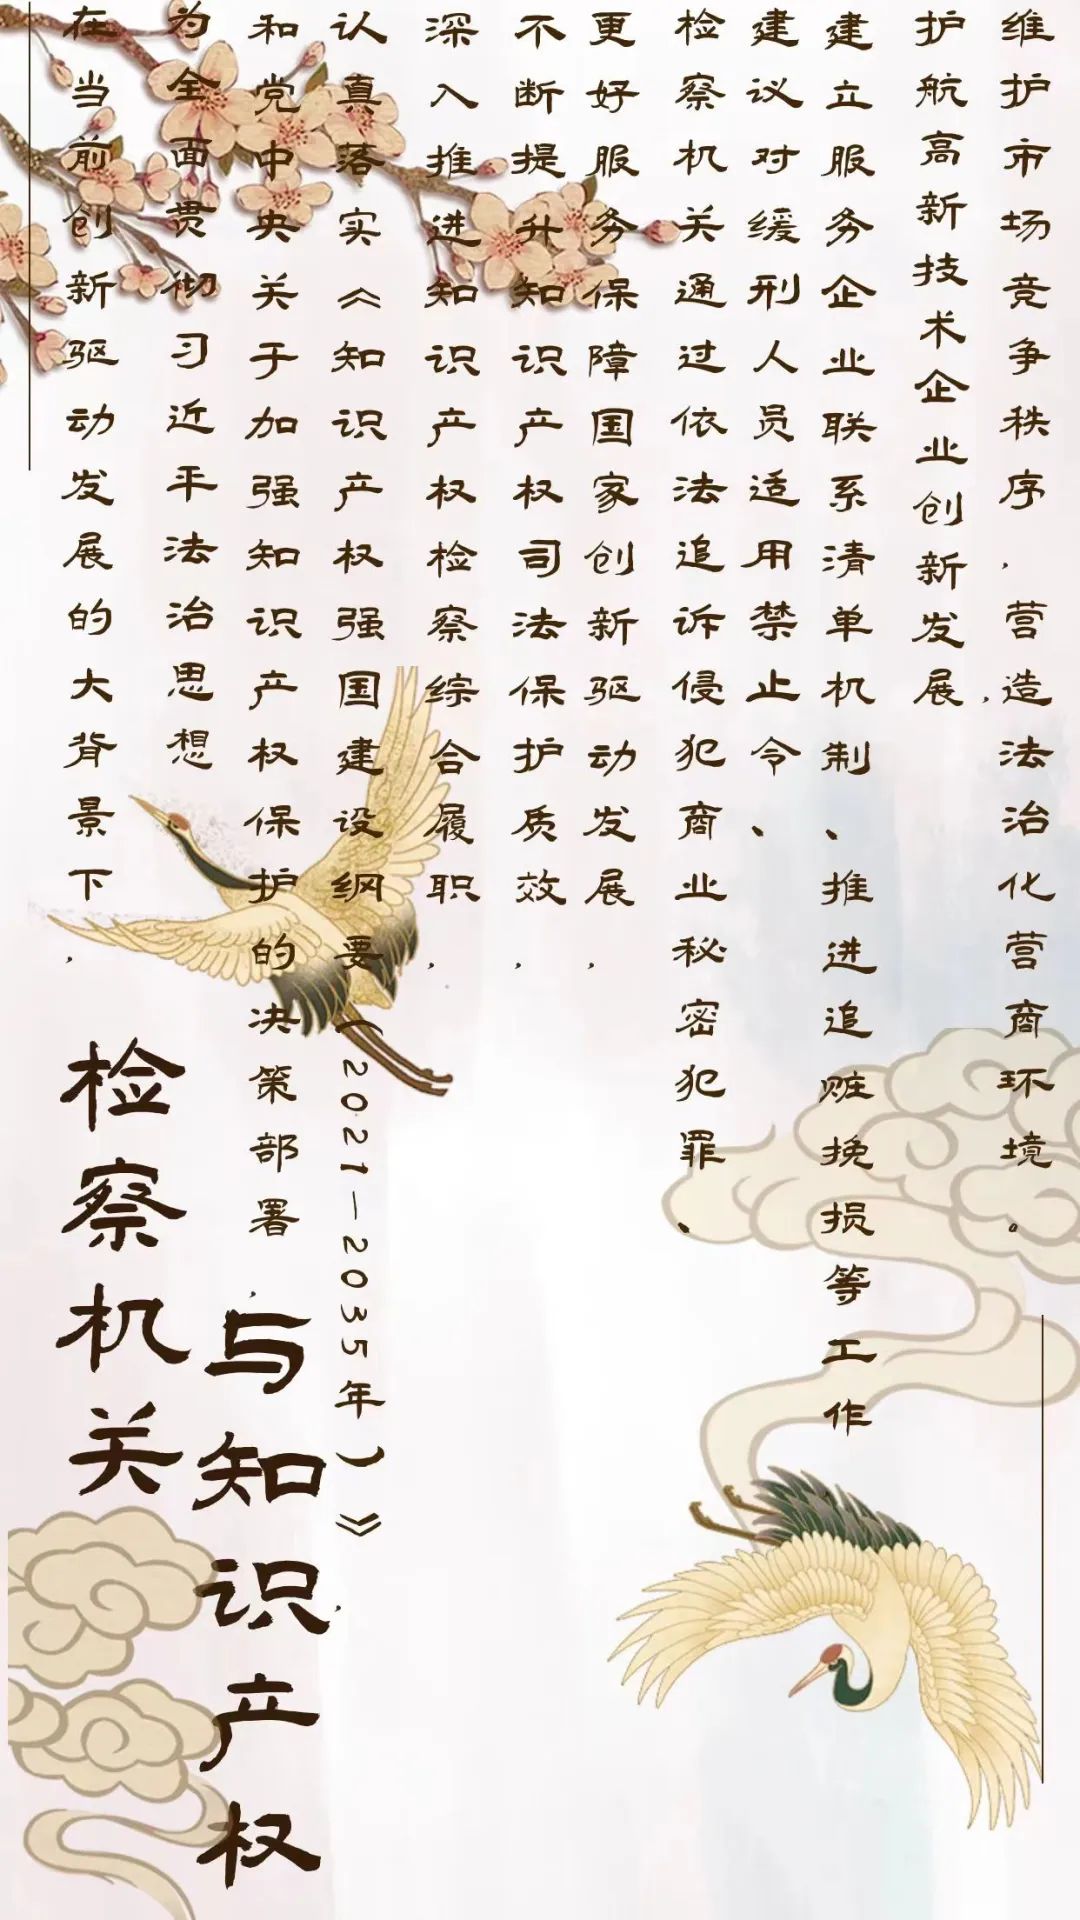 检察机关
与知识产权
在当前创新驱动发展的大背景下,
为全面贯彻习近平法治思想
和党中央关于加强知识产权保护的决策部署,
认真落实《知识产权强国建设纲要(2021-2035年)》,
深入推进知识产权检察综合履职,
不断提升知识产权司法保护质效,
更好服务保障国家创新驱动发展,
检察机关通过依法追诉侵犯商业秘密犯罪、
建议对缓刑人员适用禁止令、
建立服务企业联系清单机制、推进追赃挽损等工作
护航高新技术企业创新发展,
维护市场竞争秩序,营造法治化营商环境。